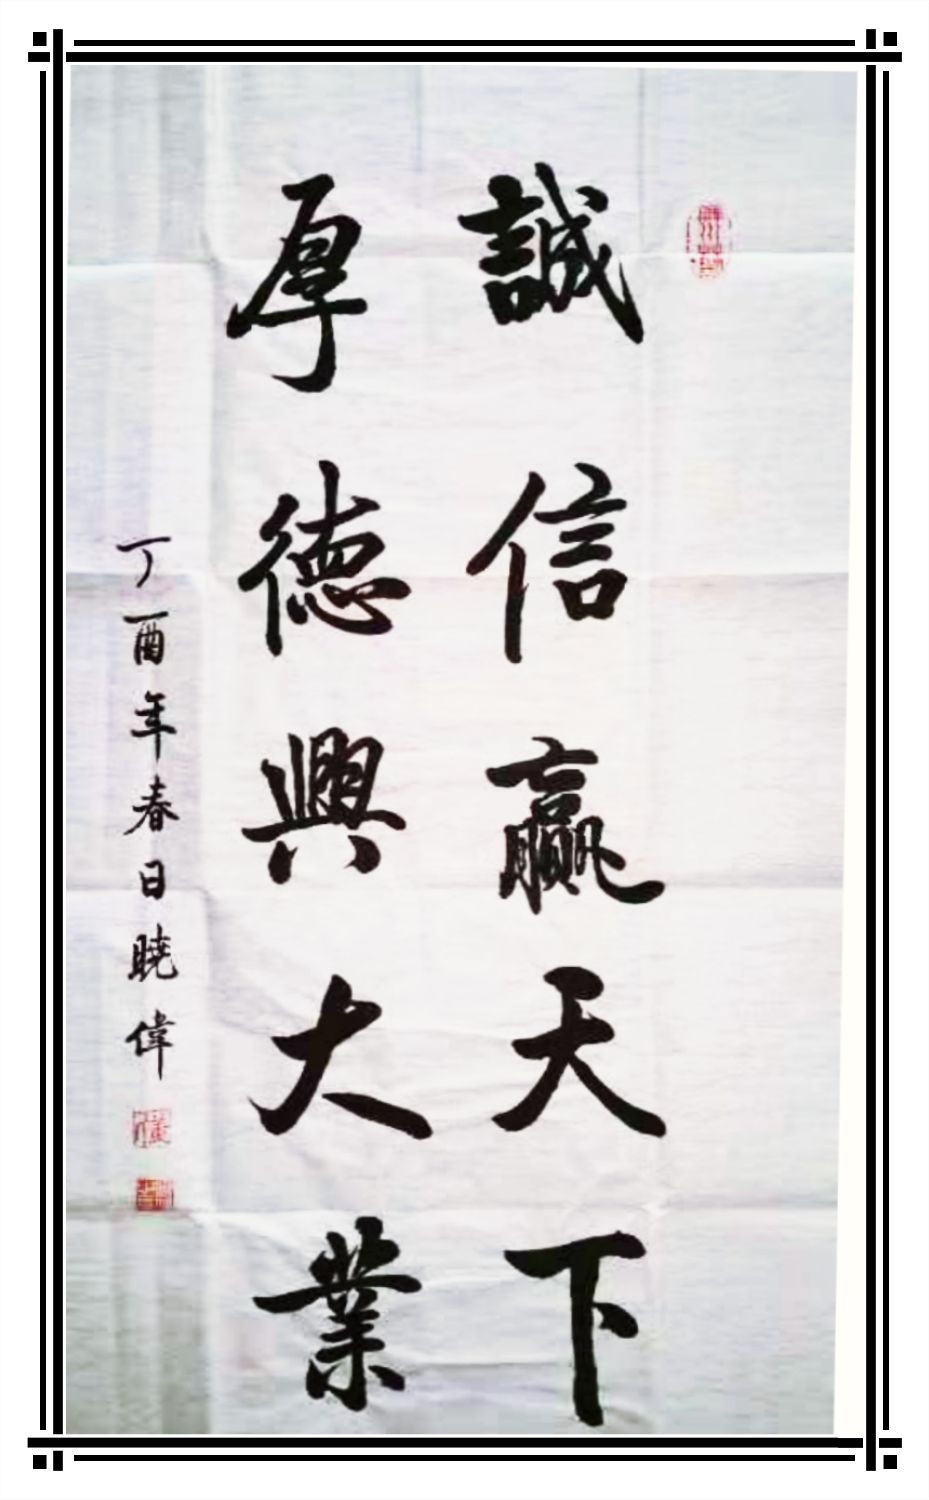 誠信贏天下
厚德興大業
丁酉年春日曉偉